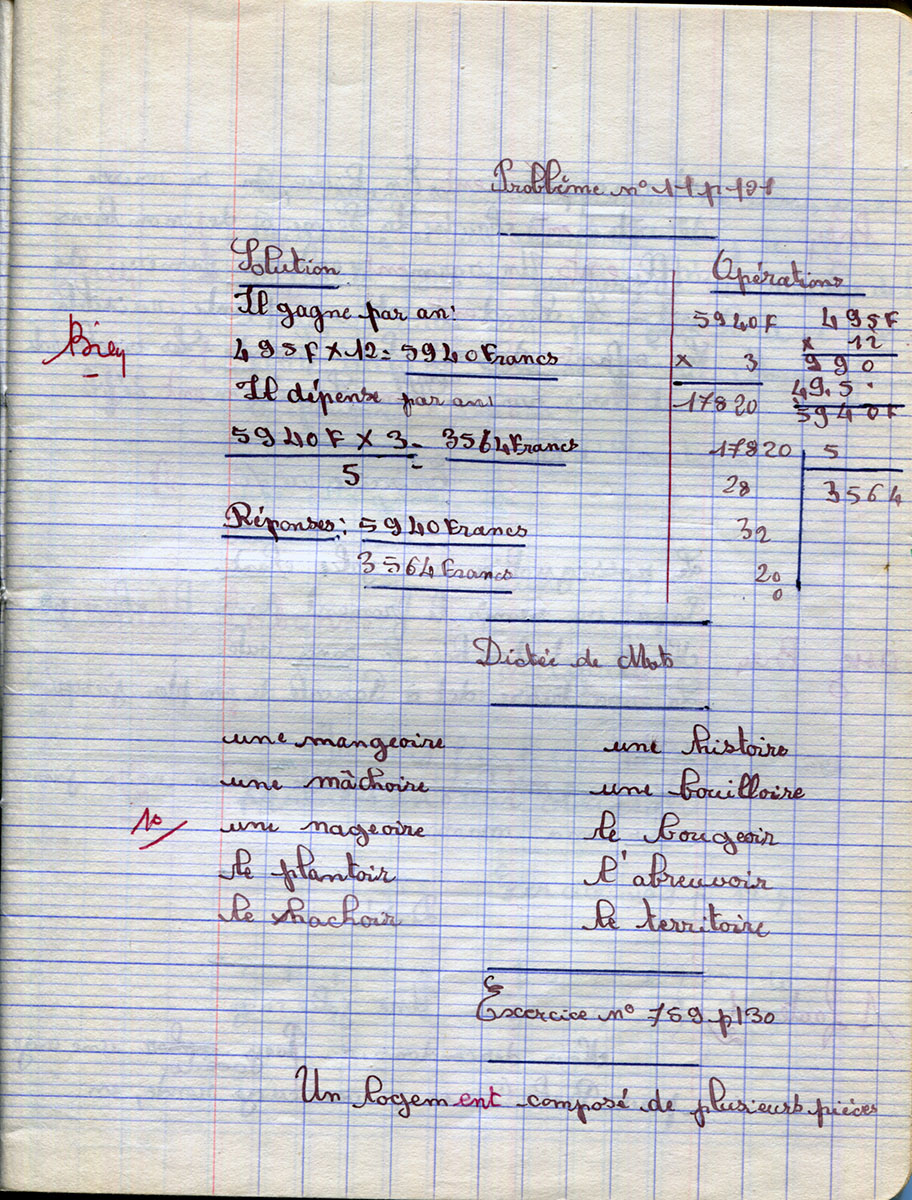 Problème n° 11 p 191
Solution
Il gagne par an:
495F × 12 = 5940 Francs
Il dépense par an:
5940F × 3 = 3564 Francs
5
Réponses: 5940 Francs
3564 Francs
Bien
Opérations
5940F
× 3
17820
495F
× 12
990
495.
5940F
17820 5
28 3564
32
20
0
Dictée de Mots
une mangeoire une histoire
une mâchoire une bouilloire
10 une nageoire le bougeoir
le plantoir l'abreuvoir
le hachoir le territoire
Exercice n° 759 p130
Un logement composé de plusieurs pièces